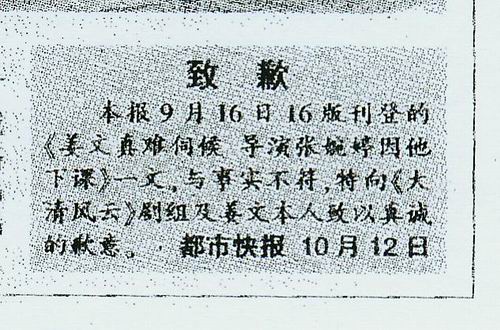 致 歉
本报9月16日16版刊登的
《姜文真难伺候 导演张婉婷因他
下课》一文，与事实不符，特向《大
清风云》剧组及姜文本人致以真诚
的歉意。 都市快报 10月12日